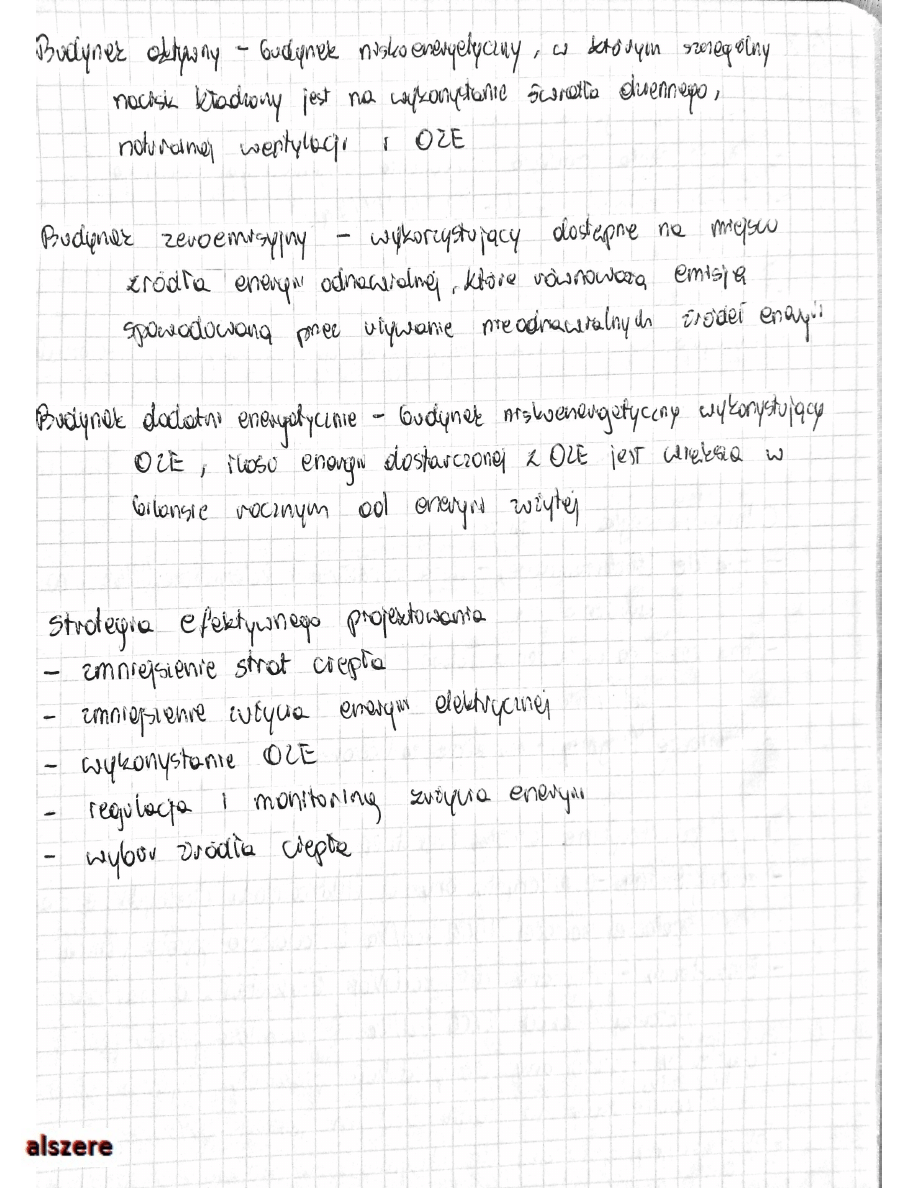 Budynek aktywny - budynek niskoenergetyczny, w którym szczególny
nacisk kładziony jest na wykorzystanie światła dziennego,
naturalnej wentylacji i OZE
Budynek zeroemisyjny - wykorzystujący dostępne na miejscu
źródła energii odnawialnej, które równoważą emisję
spowodowaną przez używanie nieodnawialnych źródeł energii
Budynek dodatni energetycznie - budynek niskoenergetyczny wykorzystujący
OZE, ilość energii dostarczonej z OZE jest większa w
bilansie rocznym od energii zużytej
Strategia efektywnego projektowania
- zmniejszenie strat ciepła
- zmniejszenie zużycia energii elektrycznej
- wykorzystanie OZE
- regulacja i monitoring zużycia energii
- wybór źródła ciepła
alszere